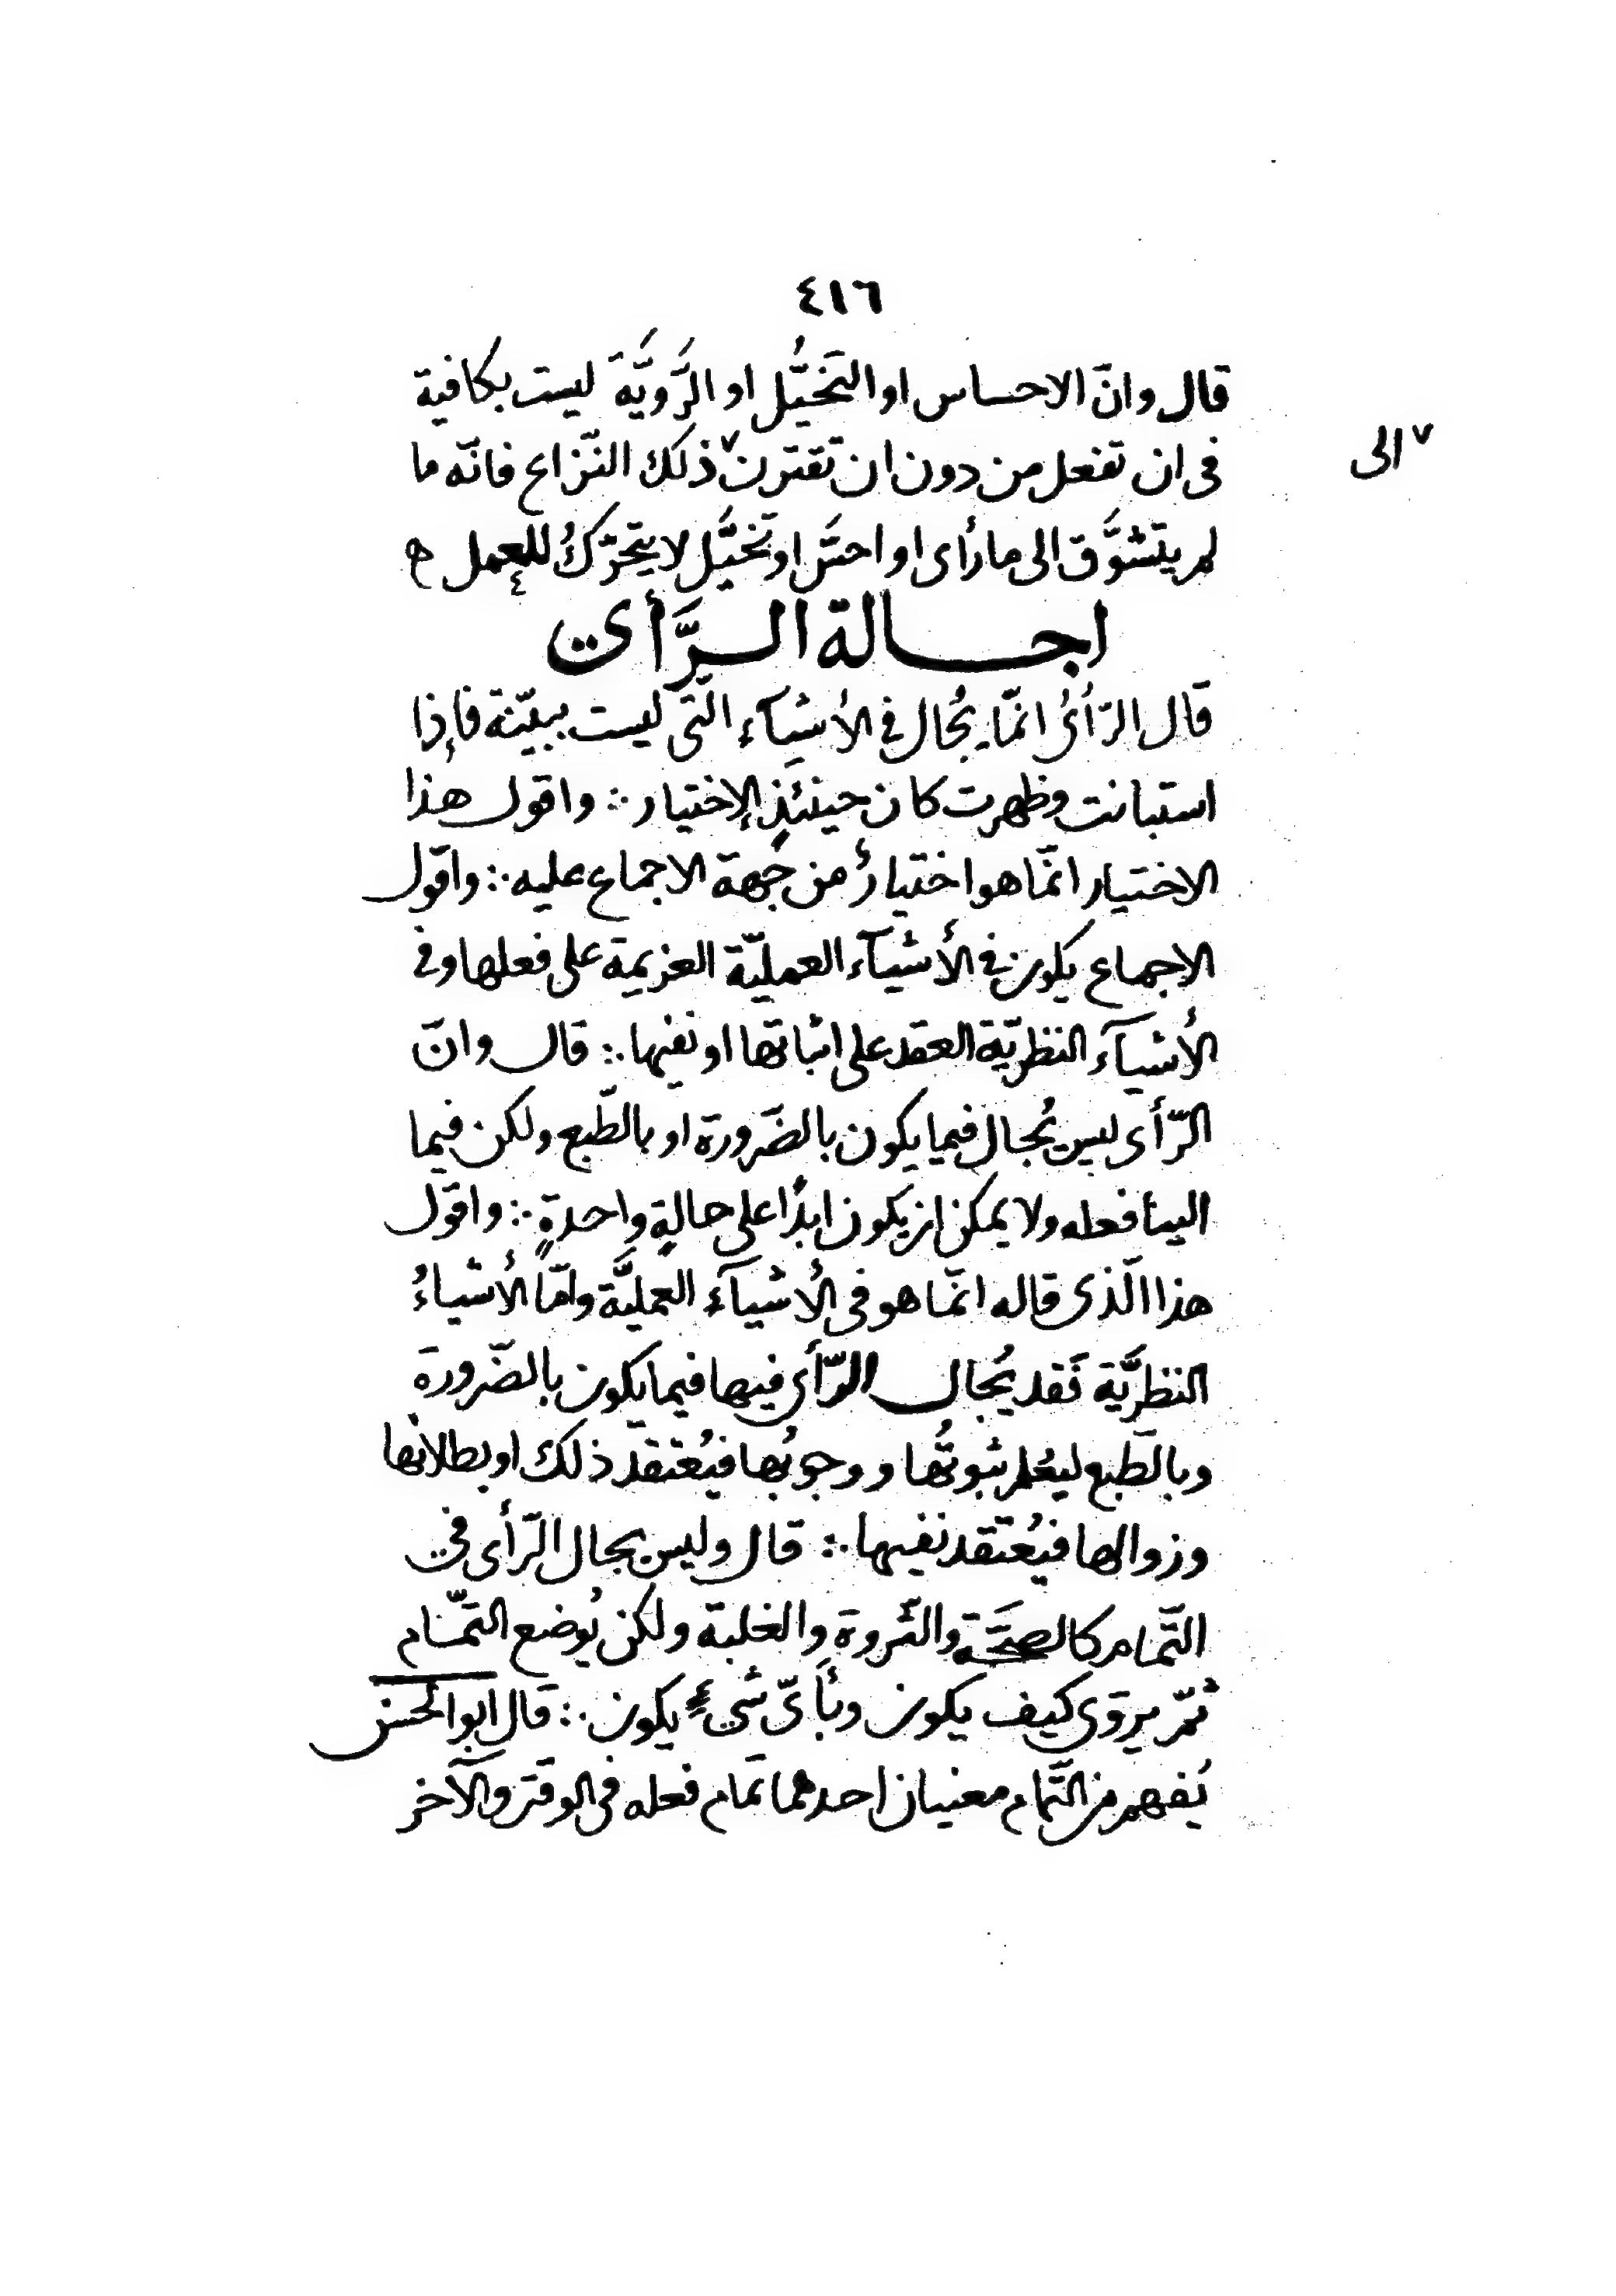 ٤١٦
قال وانّ الاحساس او التَخيُّل او الرَّويَّةَ ليست بكافية
فى ان تفعل من دون ان تقترن ٧ ذلك النّزاع فانّه ما
٧ الى
لم يتشوَّق الى ما رأى او احسَّ او تخيُّل لا يتحرّكُ للعمل ه
٤
اجالة الرَّأى
قال الرّأىُ انمّا يُجال فى الأشيآء الّتى ليست ببيّنة فإذا
استبانت وظهرت كان حينئذٍ الإختيار ∴ واقول هذا
الاختيار انمّا هو اختيارٌ من جهة الاجماع عليه ∴ واقول
الاجماع يكون فى الأشيآء العمليّة العزيمة على فعلها وفى
الأشيآء النظريّة العقد على اثباتها او نفيها ∴ قال وانّ
الرّأى ليس يُجال فيما يكون بالضَرورة او بالطّبع ولكن فيما
الينا فعله ولا يمكن ان يكون ابدًا على حالةٍ واحدةٍ ∴ واقول
هذا الّذى قاله انمّا هو فى الأشيآء العمليَّة وامّا الأشياءُ
النظريَّة فَقد يُجال الرّأى فيها فيما يكون بالضّرورة
وبالطّبع ليُعلم ثبوتُها ووجوبُها فيُعتقد ذلك او بطلانها
وزوالها فيُعتقد نفيها ∴ قال وليس يجال الرّأى فى
التّمام كالصحَّة والثّروة والغلبة ولكن يُوضع التمّام
ثمّ يروّى كيف يكون وبأىّ شىءٍ يكون ∴ قال ابو الحسن
يُفهم من التّمام معنيان احدهما تمام فعله فى الوقت والآخر